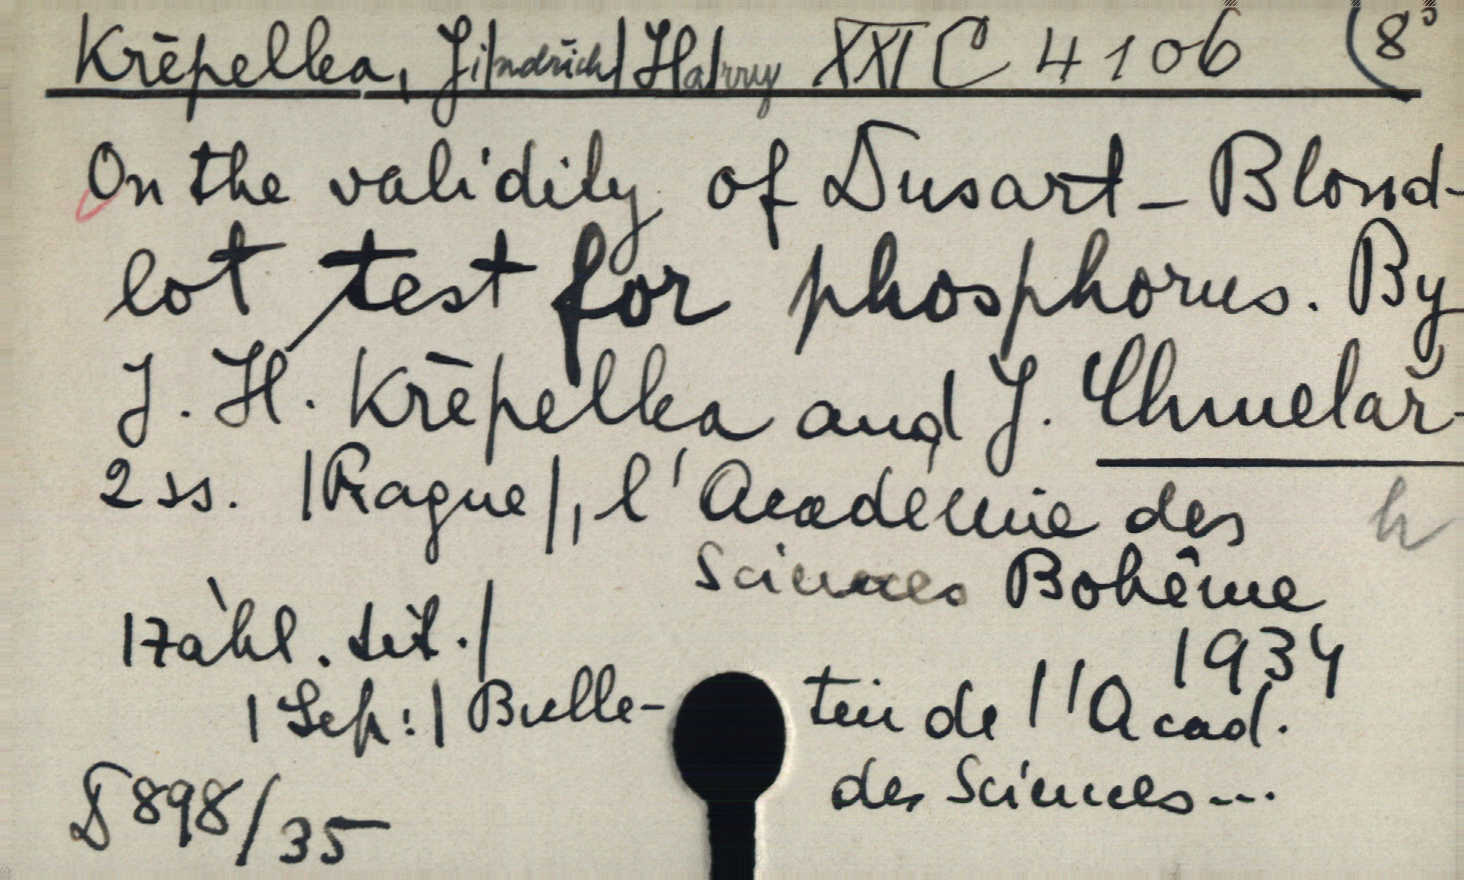 Křepelka, Ji|ndřich| Ha|rry XXI C 4106 (8°
On the validity of Dusart-Blond-
lot test for phosphorus. By
J. H. Křepelka and J. Chmelař-
2 ss. |Prague|, l'Académie des
Sciences Bohême
|záhl. tit.| 1934
|Sep:| Bulletin de l'Acad.
des Sciences...
D 898/35
h